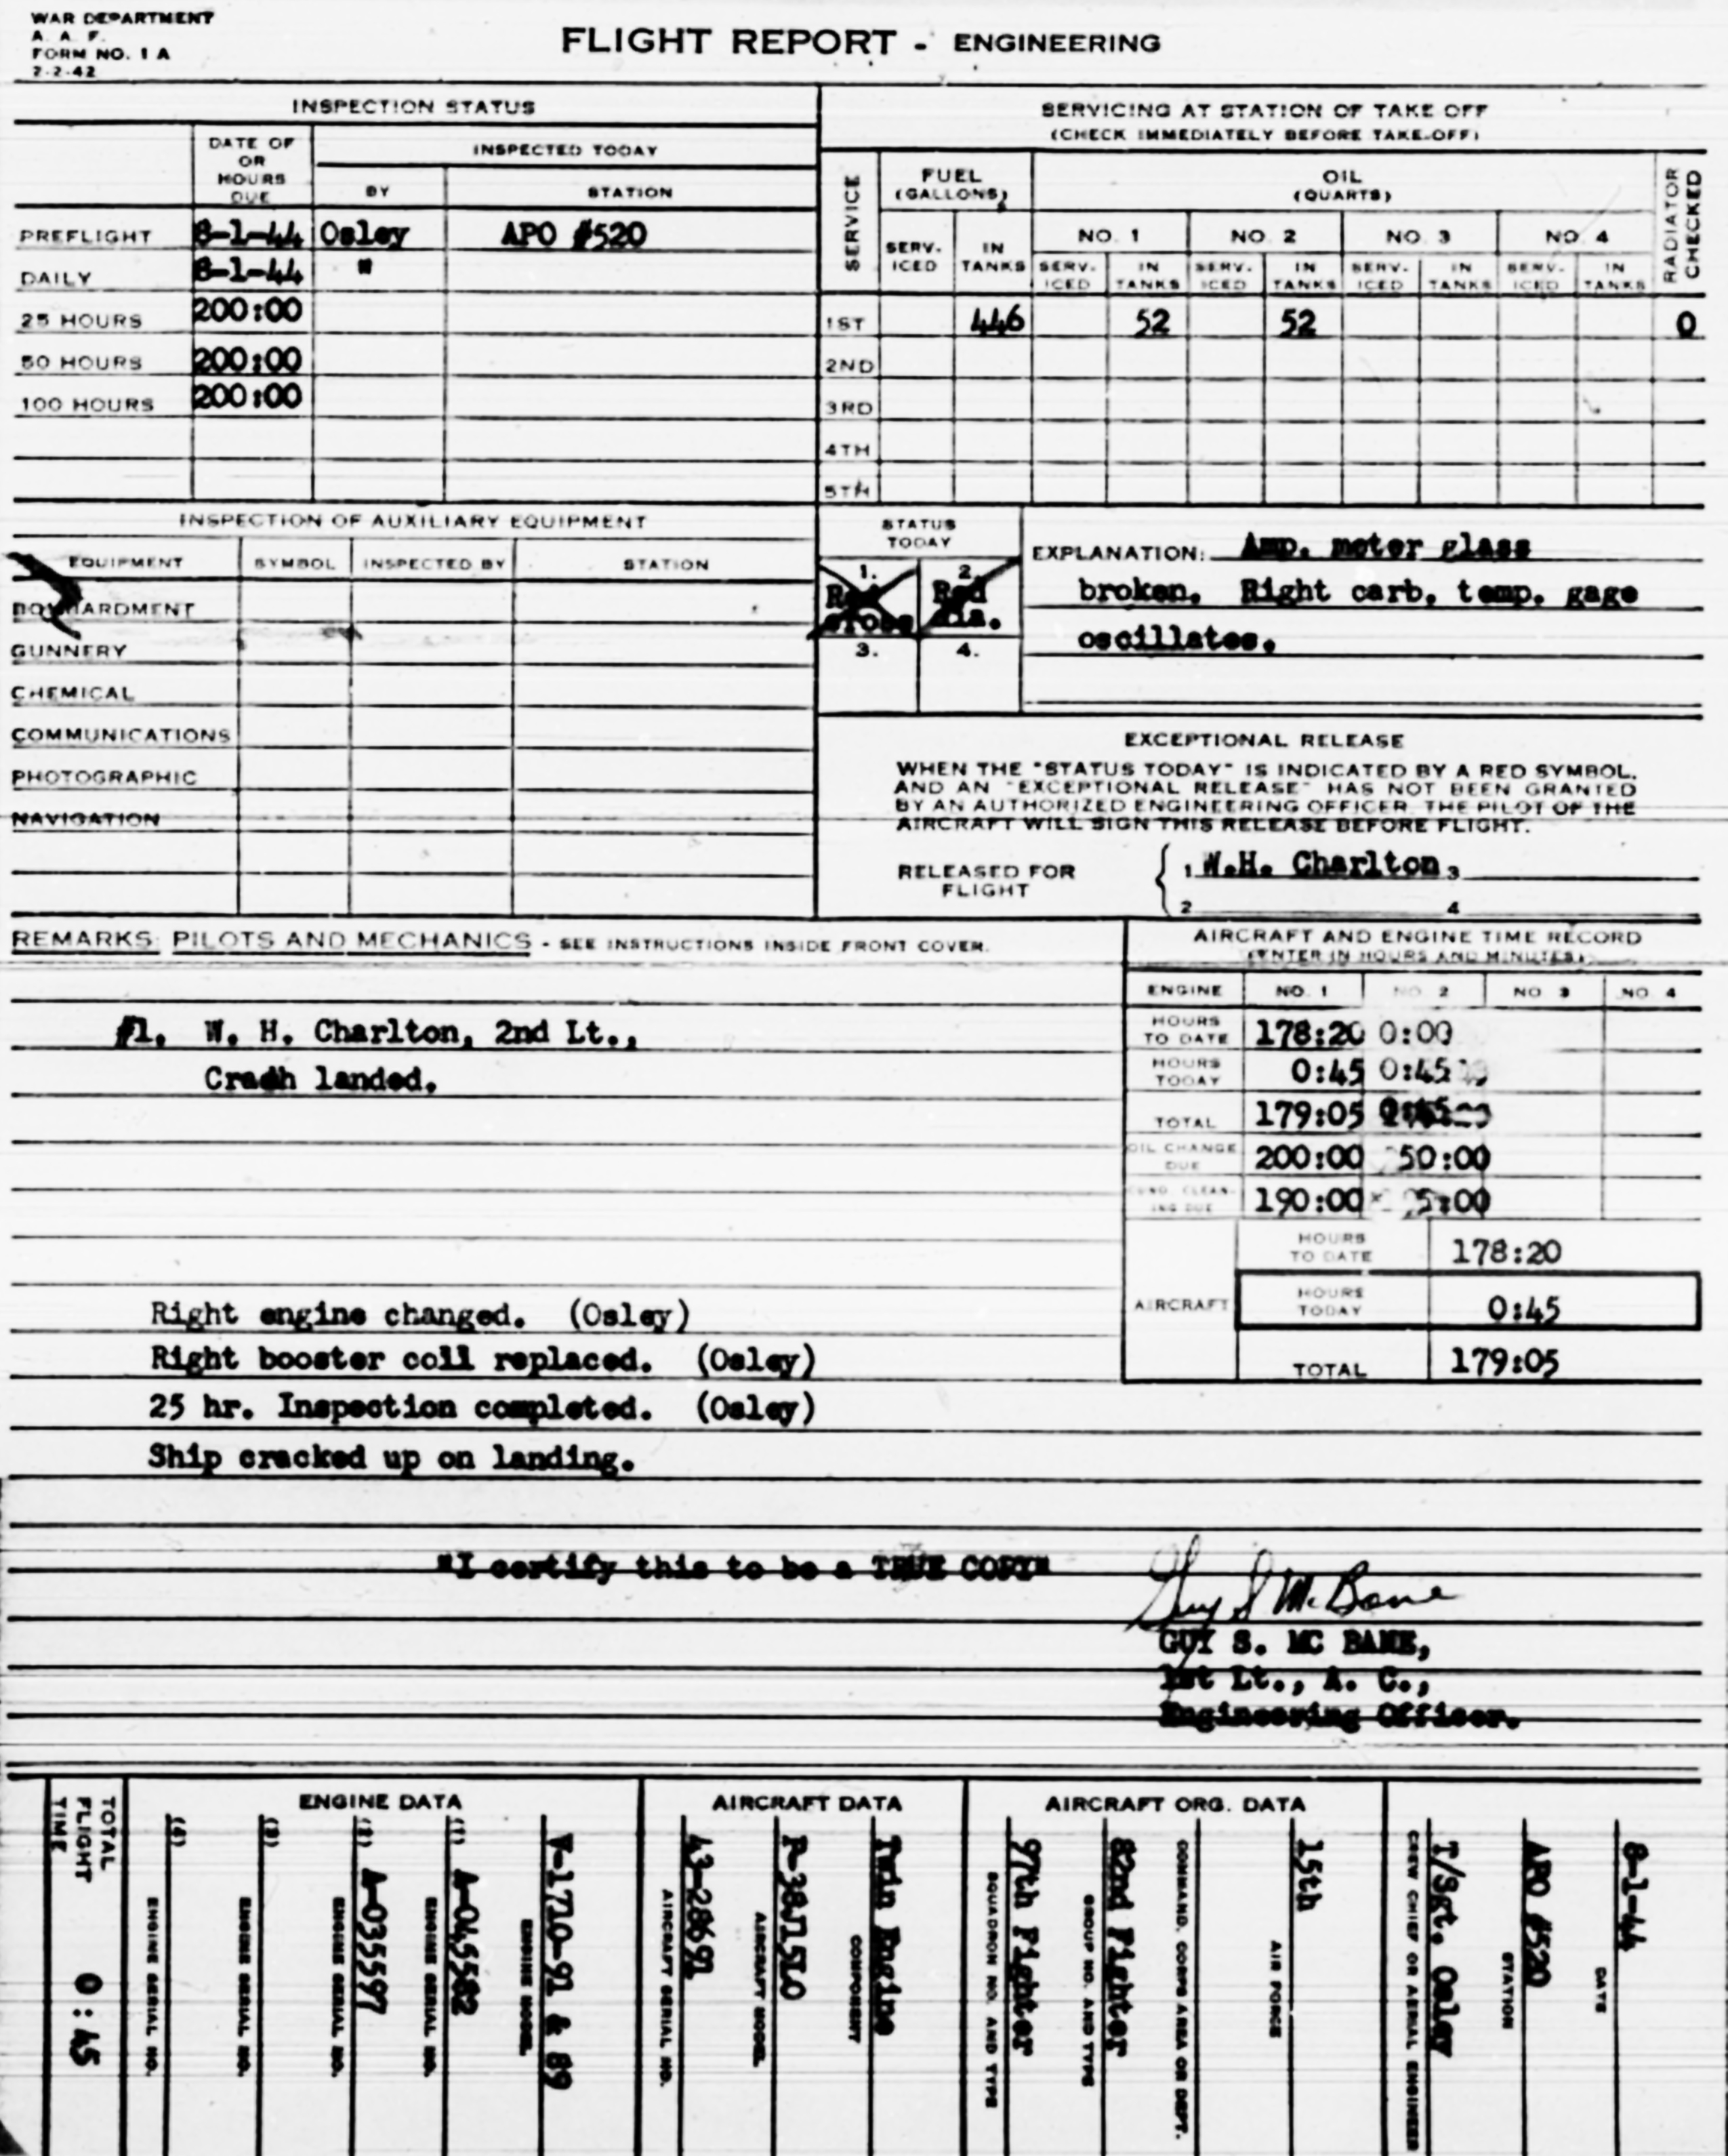 WAR DEPARTMENT
A. A. F.
FORM NO. 1 A
2-2-42
FLIGHT REPORT - ENGINEERING
INSPECTION STATUS
DATE OF OR HOURS DUE
INSPECTED TODAY
BY STATION
PREFLIGHT 8-1-44 Osley APO #520
DAILY 8-1-44 "
25 HOURS 200:00
50 HOURS 200:00
100 HOURS 200:00
SERVICING AT STATION OF TAKE OFF
(CHECK IMMEDIATELY BEFORE TAKE-OFF)
SERVICE
FUEL (GALLONS)
OIL (QUARTS)
RADIATOR CHECKED
NO. 1 NO. 2 NO. 3 NO. 4
SERV-ICED IN TANKS SERV-ICED IN TANKS SERV-ICED IN TANKS SERV-ICED IN TANKS SERV-ICED IN TANKS
1ST 446 52 52 0
2ND
3RD
4TH
5TH
INSPECTION OF AUXILIARY EQUIPMENT
EQUIPMENT SYMBOL INSPECTED BY STATION
BOMBARDMENT
GUNNERY
CHEMICAL
COMMUNICATIONS
PHOTOGRAPHIC
NAVIGATION
STATUS TODAY
1. Red cross
2. Red dia.
3. 4.
EXPLANATION: Amp. meter glass
broken. Right carb. temp. gage
oscillates.
EXCEPTIONAL RELEASE
WHEN THE "STATUS TODAY" IS INDICATED BY A RED SYMBOL,
AND AN "EXCEPTIONAL RELEASE" HAS NOT BEEN GRANTED
BY AN AUTHORIZED ENGINEERING OFFICER THE PILOT OF THE
AIRCRAFT WILL SIGN THIS RELEASE BEFORE FLIGHT.
RELEASED FOR FLIGHT
1 W.H. Charlton 3
2 4
REMARKS: PILOTS AND MECHANICS - SEE INSTRUCTIONS INSIDE FRONT COVER.
#1. W. H. Charlton, 2nd Lt.,
Crash landed.
AIRCRAFT AND ENGINE TIME RECORD
(ENTER IN HOURS AND MINUTES)
ENGINE NO. 1 NO. 2 NO. 3 NO. 4
HOURS TO DATE 178:20 0:00
HOURS TODAY 0:45 0:45
TOTAL 179:05
OIL CHANGE DUE 200:00 50:00
190:00
AIRCRAFT
HOURS TO DATE 178:20
HOURS TODAY 0:45
TOTAL 179:05
Right engine changed. (Osley)
Right booster coil replaced. (Osley)
25 hr. Inspection completed. (Osley)
Ship cracked up on landing.
"I certify this to be a TRUE COPY"
Guy S McBane
GUY S. MC BANE,
1st Lt., A. C.,
Engineering Officer.
8-1-44
DATE
APO #520
STATION
T/Sgt. Osley
CREW CHIEF OR AERIAL ENGINEER
AIRCRAFT ORG. DATA
15th
AIR FORCE
COMMAND, CORPS AREA OR DEPT.
82nd Fighter
GROUP NO. AND TYPE
97th Fighter
SQUADRON NO. AND TYPE
AIRCRAFT DATA
Twin Engine
COMPONENT
P-38J15LO
AIRCRAFT MODEL
43-28691
AIRCRAFT SERIAL NO.
ENGINE DATA
V-1710-91 & 89
ENGINE MODEL
(1) A-045582
ENGINE SERIAL NO.
(2) A-035597
ENGINE SERIAL NO.
(3)
ENGINE SERIAL NO.
(4)
ENGINE SERIAL NO.
TOTAL FLIGHT TIME 0:45